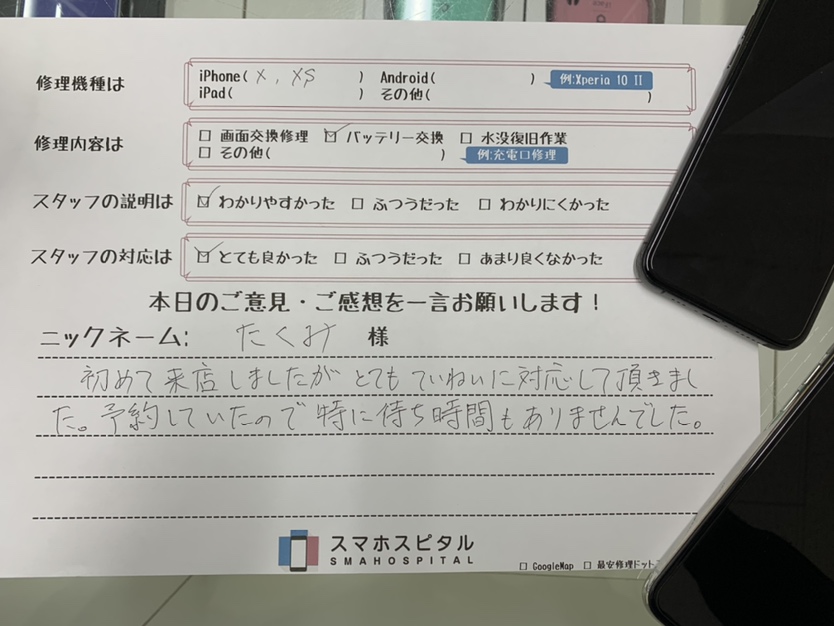 修理機種は
iPhone( X, XS ) Android( ) 例:Xperia 10 II
iPad( ) その他( )
修理内容は
☐ 画面交換修理 ☑ バッテリー交換 ☐ 水没復旧作業
☐ その他( ) 例:充電口修理
スタッフの説明は ☑ わかりやすかった ☐ ふつうだった ☐ わかりにくかった
スタッフの対応は ☑ とても良かった ☐ ふつうだった ☐ あまり良くなかった
本日のご意見・ご感想を一言お願いします!
ニックネーム: たくみ 様
初めて来店しましたがとてもていねいに対応して頂きまし
た。予約していたので特に待ち時間もありませんでした。
スマホスピタル
SMAHOSPITAL
☐ GoogleMap ☐ 最安修理ドット